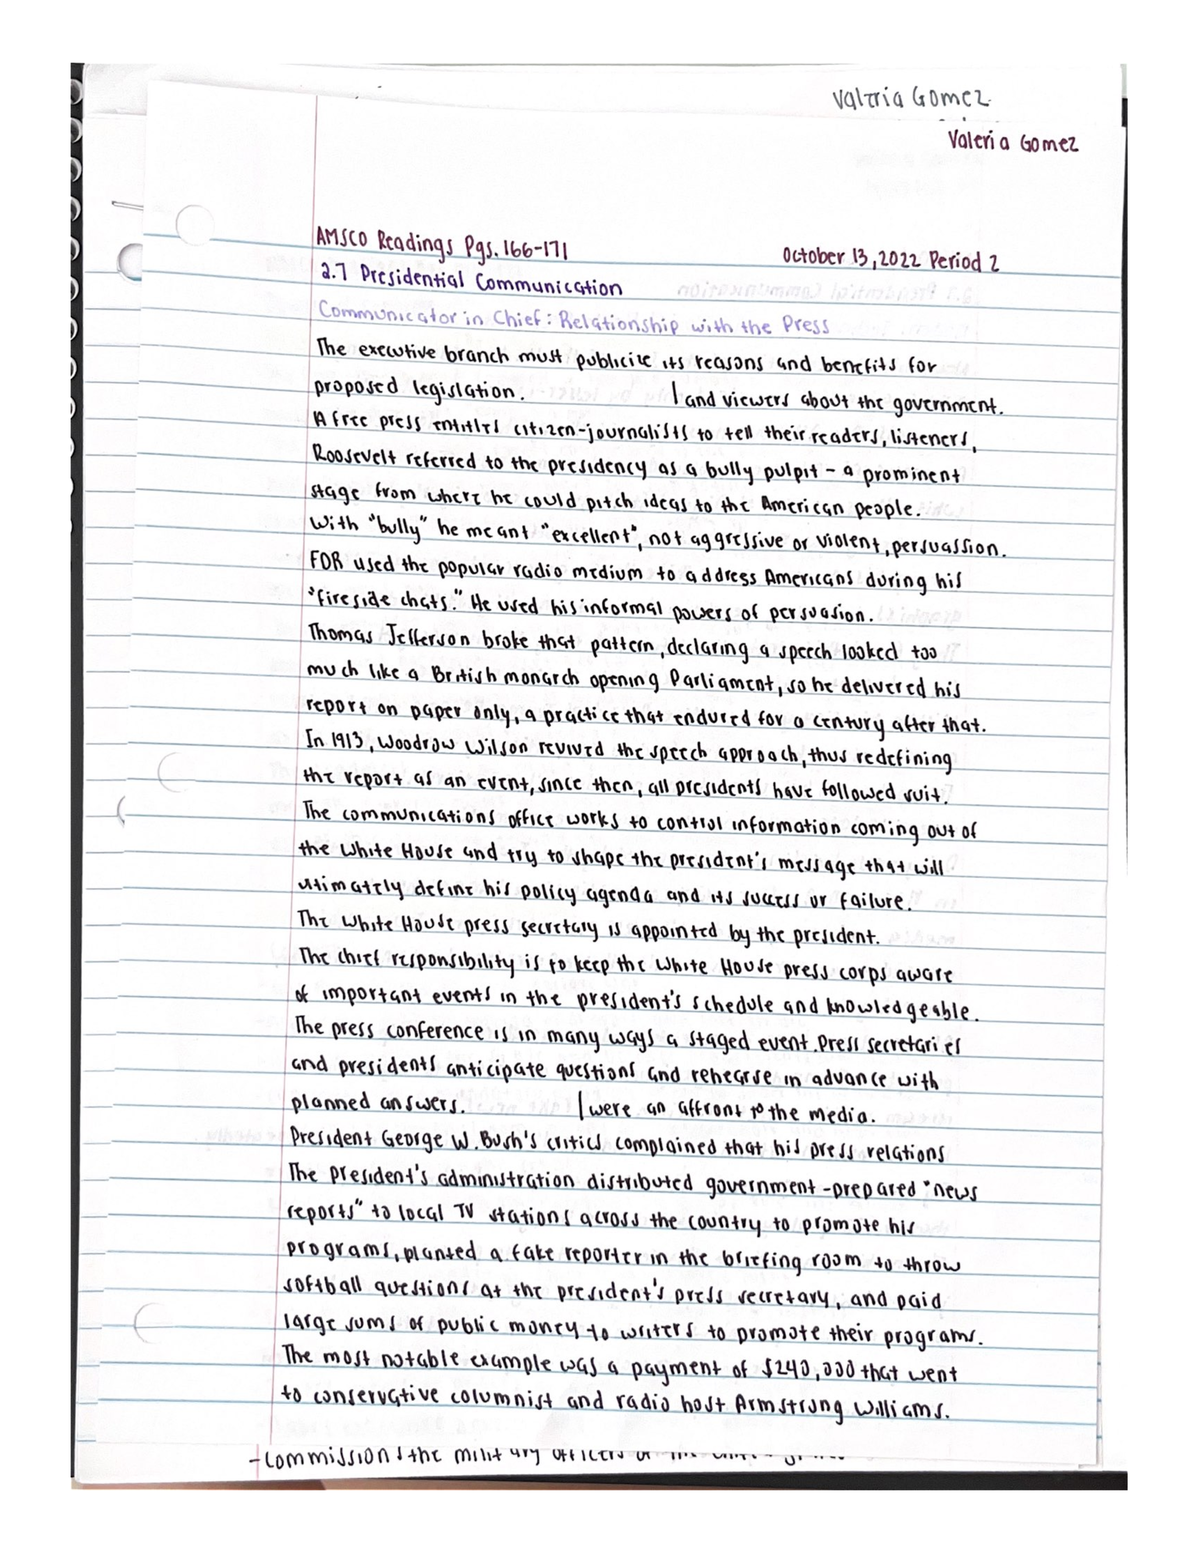 Valeria Gomez
Valeria Gomez
AMSCO Readings Pgs. 166-171
October 13, 2022 Period 2
2.7 Presidential Communication
Communicator in Chief: Relationship with the Press
The executive branch must publicize its reasons and benefits for
proposed legislation. | and viewers about the government.
A free press entitles citizen-journalists to tell their readers, listeners,
Roosevelt referred to the presidency as a bully pulpit - a prominent
stage from where he could pitch ideas to the American people.
With "bully" he meant "excellent", not aggressive or violent, persuassion.
FDR used the popular radio medium to address Americans during his
"fireside chats." He used his informal powers of persuasion.
Thomas Jefferson broke that pattern, declaring a speech looked too
much like a British monarch opening Parliament, so he delivered his
report on paper only, a practice that endured for a century after that.
In 1913, Woodrow Wilson revived the speech approach, thus redefining
the report as an event, since then, all presidents have followed suit.
The communications office works to control information coming out of
the White House and try to shape the president's message that will
ultimately define his policy agenda and its success or failure.
The White House press secretary is appointed by the president.
The chief responsibility is to keep the White House press corps aware
of important events in the president's schedule and knowledgeable.
The press conference is in many ways a staged event. Press secretaries
and presidents anticipate questions and rehearse in advance with
planned answers. | were an affront to the media.
President George W. Bush's critics complained that his press relations
The president's administration distributed government-prepared "news
reports" to local TV stations across the country to promote his
programs, planted a fake reporter in the briefing room to throw
softball questions at the president's press secretary, and paid
large sums of public money to writers to promote their programs.
The most notable example was a payment of $240,000 that went
to conservative columnist and radio host Armstrong Williams.
- Commissions the military officers of